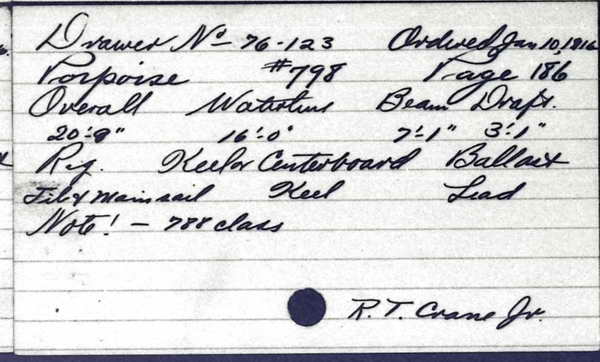 Drawer No 76-123 Ordered Jan 10, 1916
Porpoise #798 Page 186
Overall Waterline Beam Draft.
20'-9" 16'-0" 7'-1" 3'-1"
Rig. Keel or Centerboard Ballast
Jib & Mainsail Keel Lead
Note! - 788 class
R. T. Crane Jr.